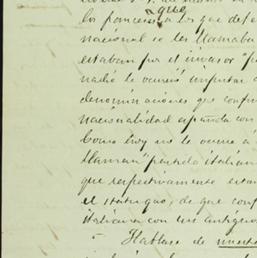 que
los franceses a los que defe
nacional se les llamaba
estaban por el invasor "p
nadie le ocurrió imputar a
denominaciones que conf
nacionalidad española con
Como hoy no le ocurre a
llaman "partido italian
que respectivamente esta
el statu quo, de que conf
italiana con los antiguo
- Hablase de nuestro